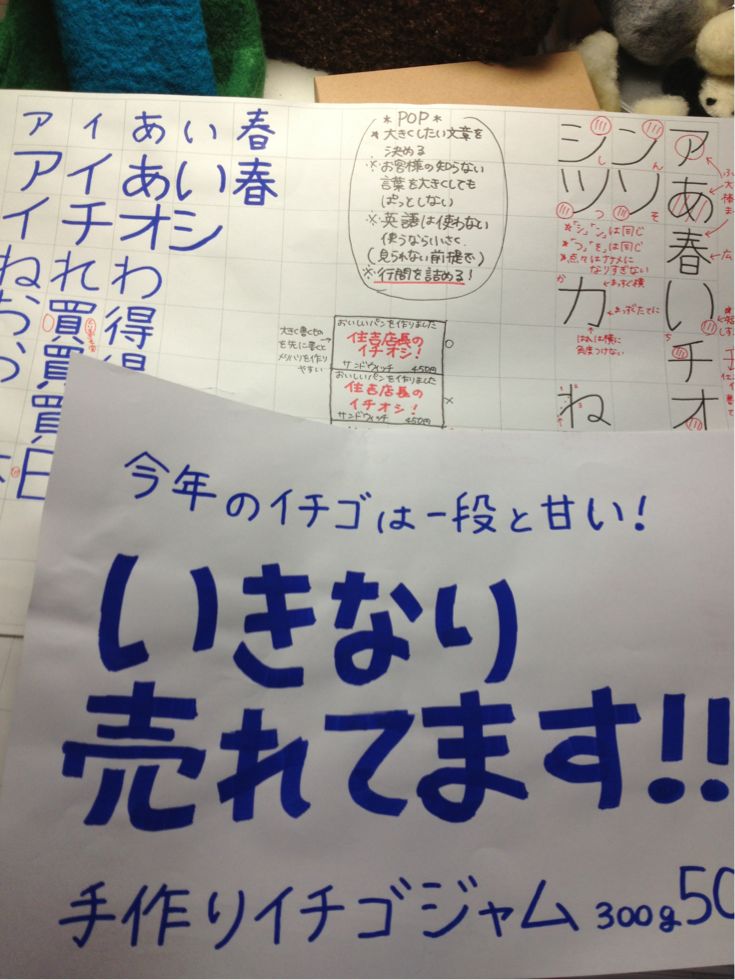 アイあい春
アイあい春
イチオシ
ねれわ
お買得
お買得
買
日
*POP*
*大きくしたい文章を
決める
※お客様の知らない
言葉を大きくしても
ぱっとしない
※英語は使わない
使うなら小さく
(見られない前提で)
※行間を詰める!
大きく書くもの
を先に書くと
メリハリを作り
やすい
おいしいパンを作りました
住吉店長の
イチオシ!
サンドウィッチ 450円
○
おいしいパンを作りました
住吉店長の
イチオシ!
サンドウィッチ 450円
×
シン
し ん
ツソ
つ そ
"シ""ン"は同じ
"つ""そ"は同じ
*点々はナナメに
なりすぎない
か
カ
はねは横に
角度つけない
ね
ア
あ
春
い
チ
オ
今年のイチゴは一段と甘い!
いきなり
売れてます!!
手作りイチゴジャム 300g 50